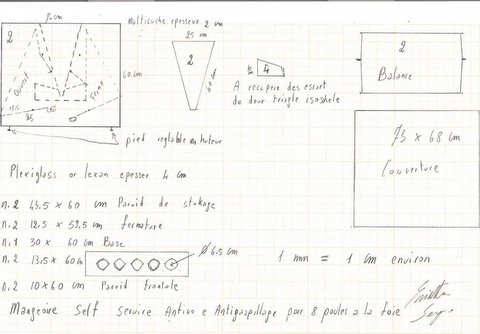 70 cm
Multicuche epesseur 2 cm
25 cm
2
2
60 cm
60 cm
35
4
2
Balance
A recupere des escart
de deux triangle isoshele
pied reglable en huteur
75 x 68 cm
Couverture
Plexiglass or lexan epesser 4 cm
n.2 43.5 x 60 cm Paroid de stokage
n.2 12.5 x 59.5 cm fermature
n.1 30 x 60 cm Base
n.2 13.5 x 60 cm
Ø 6.5 cm
1 mm = 1 cm environ
n.2 10 x 60 cm Paroid frontale
Mangeaire Self Service Antivo e Antigaspillage par 8 poules a la foie